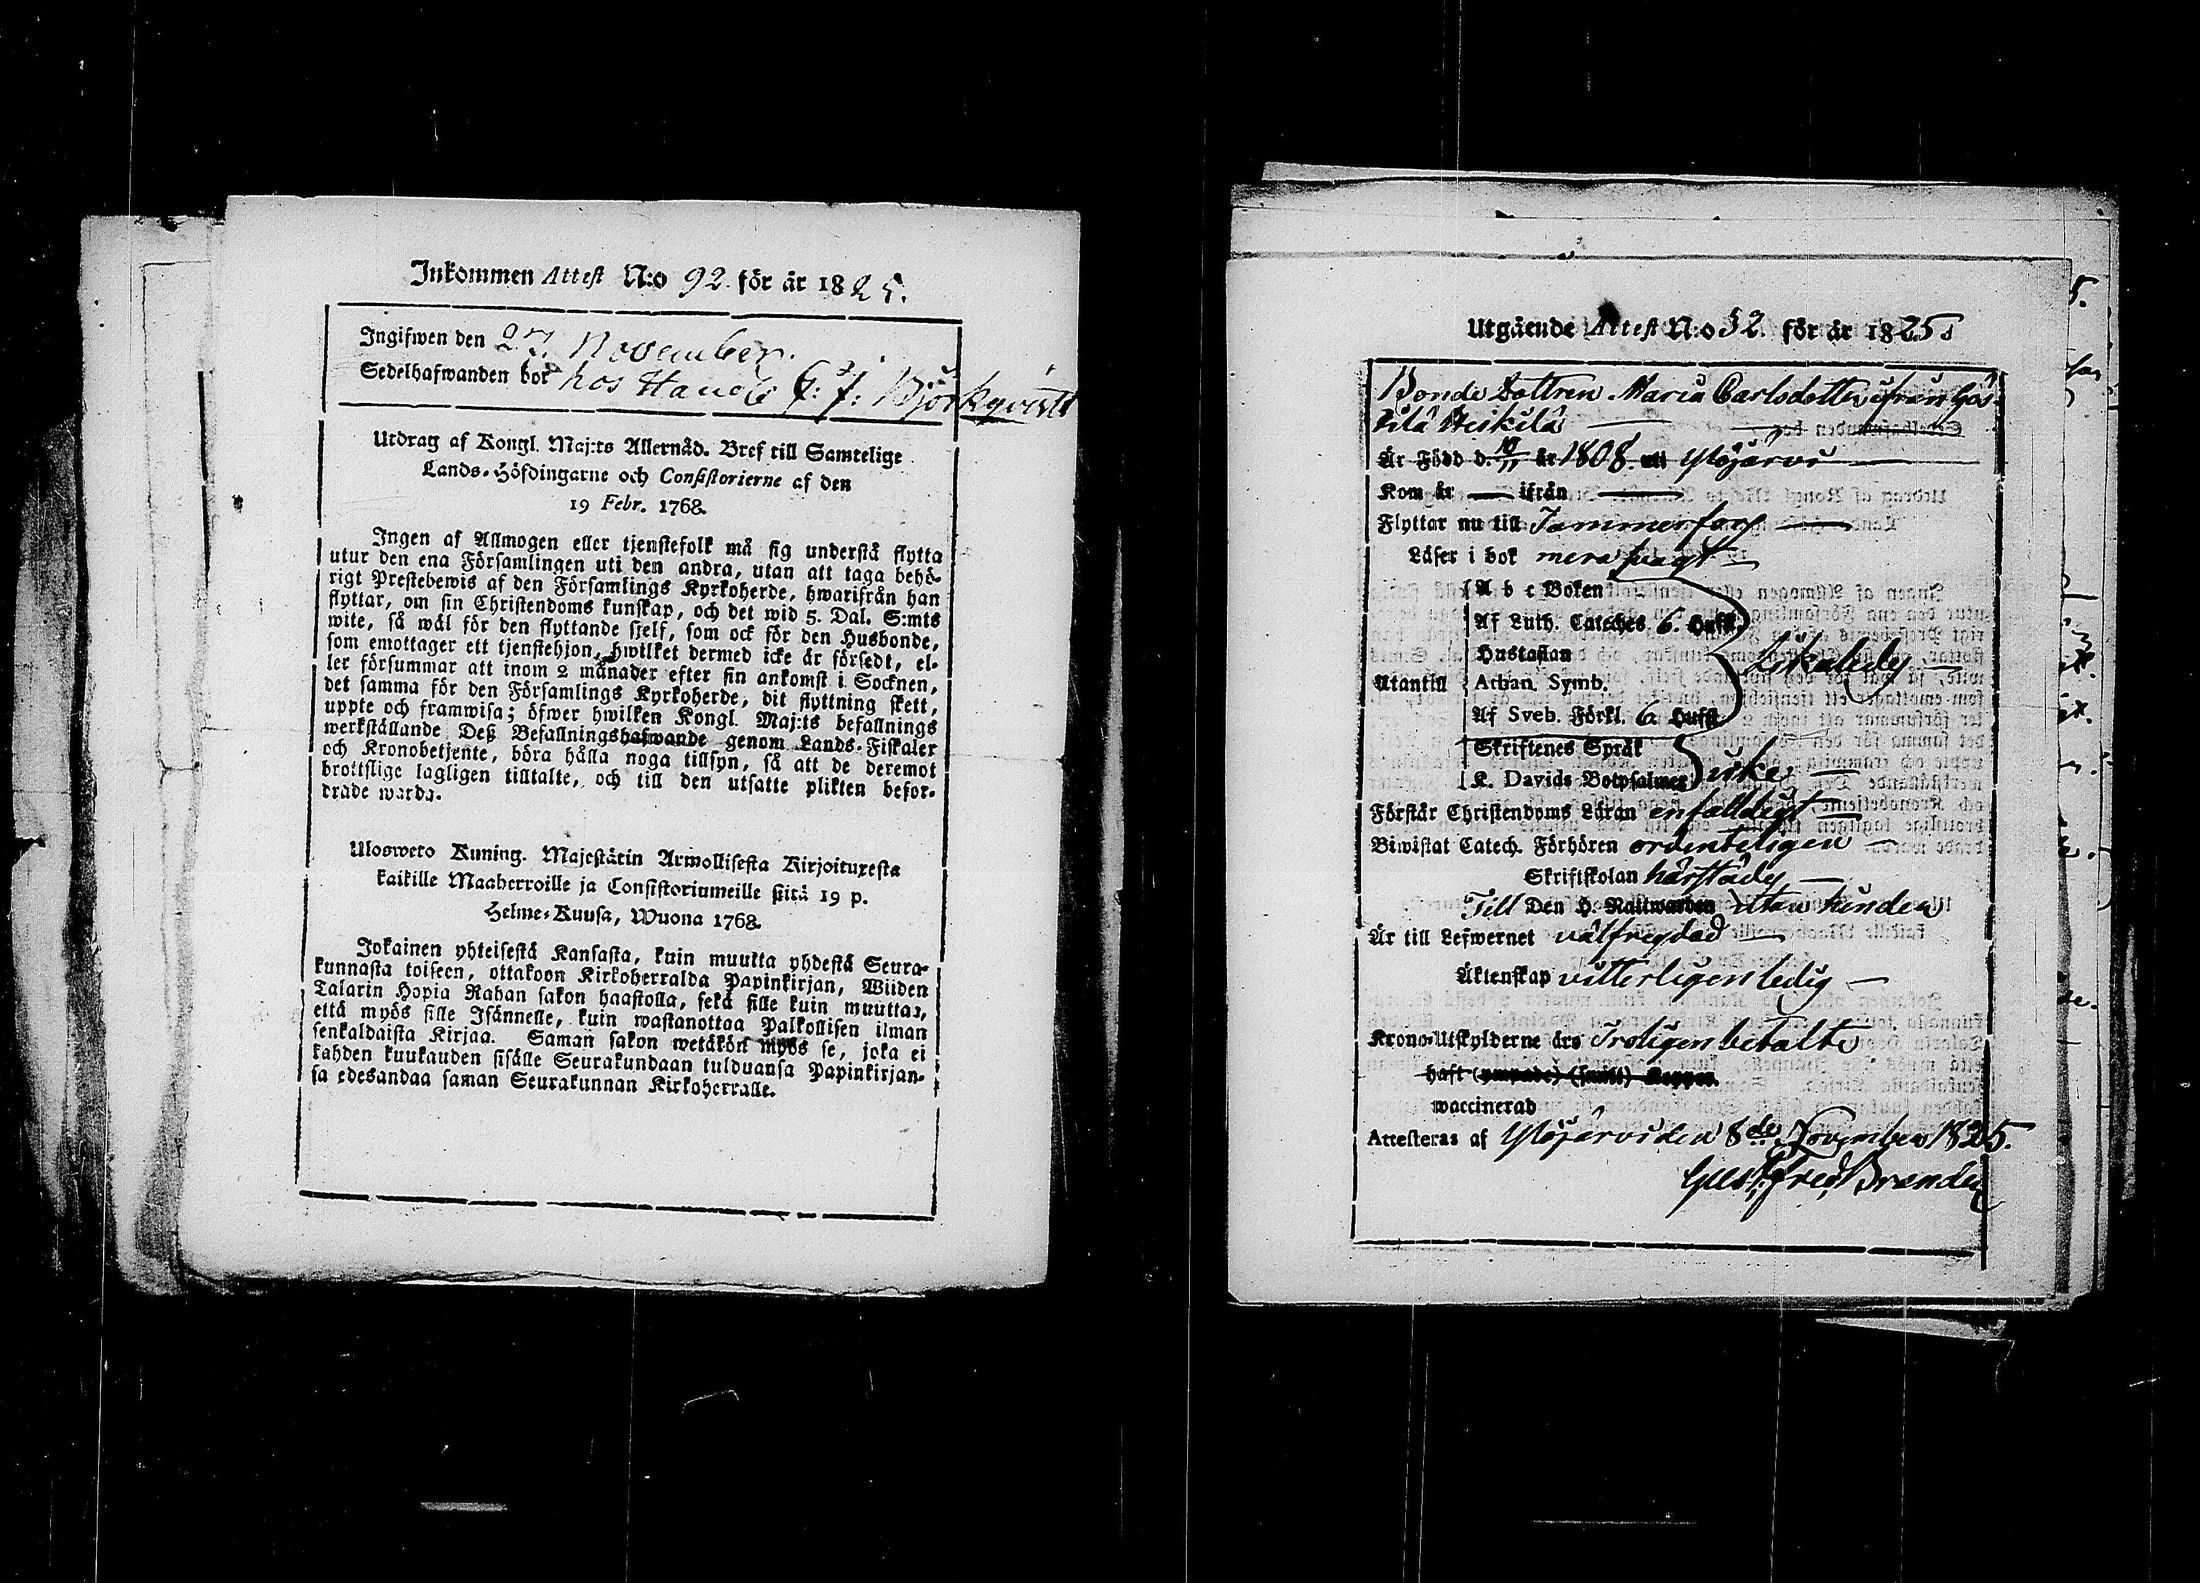 Inkommen Attest N:o 92. för år 1825.
Ingifwen den 27. November.
Sedelhafwanden bor hos Handl: G: J: Björkqvist
Utdrag af Kongl. Maj:ts Allernåd. Bref till Samtelige
Lands-Höfdingarne och Consistorierne af den
19 Febr. 1768.
Ingen af Allmogen eller tjenstefolk må sig understå flytta
utur den ena Församlingen uti den andra, utan att taga behö-
rigt Prestebewis af den Församlings Kyrkoherde, hwarifrån han
flyttar, om sin Christendoms kunskap, och det wid 5. Dal. S:mts
wite, så wäl för den flyttande sjelf, som ock för den Husbonde,
som emottager ett tjenstehjon, hwilket dermed icke är försedt, el-
ler försummar att inom 2 månader efter sin ankomst i Socknen,
det samma för den Församlings Kyrkoherde, dit flyttning skett,
uppte och framwisa; öfwer hwilken Kongl. Maj:ts befallnings
werkställande Deß Befallningshafwande genom Lands-Fiskaler
och Kronobetjente, böra hålla noga tillsyn, så att de deremot
brottslige lagligen tilltalte, och till den utsatte plikten befor-
drade warda.
Ulosweto Kuning. Majestätin Armollisesta Kirjoituxesta
kaikille Maaherroille ja Consistoriumeille siitä 19 p.
Helme-Kuusa, Wuona 1768.
Jokainen yhteisestä Kansasta, kuin muutta yhdestä Seura-
kunnasta toiseen, ottakoon Kirkoherralda Papinkirjan, Wiiden
Talarin Hopia Rahan sakon haastolla, sekä sille kuin muuttaa,
että myös sille Isännelle, kuin wastanottaa Palkollisen ilman
senkaldaista Kirjaa. Saman sakon wetäkön myös se, joka ei
kahden kuukauden sisälle Seurakundaan tulduansa Papinkirjan-
sa edesandaa saman Seurakunnan Kirkoherralle.
Utgående Attest N:o 52. för år 1825
Bonde Dottren Maria Carlsdotter ifrån
Heikilä
Är Född d. 10/11 år 1808. uti Ylöjärvi
Kom år — ifrån —
Flyttar nu till Tammerfors
Läser i bok mera svagt
A b c Boken
Af Luth. Cateches 6. Hufst.
Hustaflan
Utantill Athan. Symb.
Af Sveb. Förkl. 6 Hufst.
likaledes
Skriftenes Språk
K. Davids Botpsalmer icke
Förstår Christendoms Läran enfaldigt
Biwistat Catech. Förhören ordenteligen
Skriftskolan härstädes
Till Den H. Nattwarden
Är till Lefwernet välfrejdad
Äktenskap vitterligen ledig
Krono-Utskylderne äro Troligen betalte
haft (ympade) (smitt) Koppor.
waccinerad
Attesteras af Ylöjärvi den 8de November 1825.